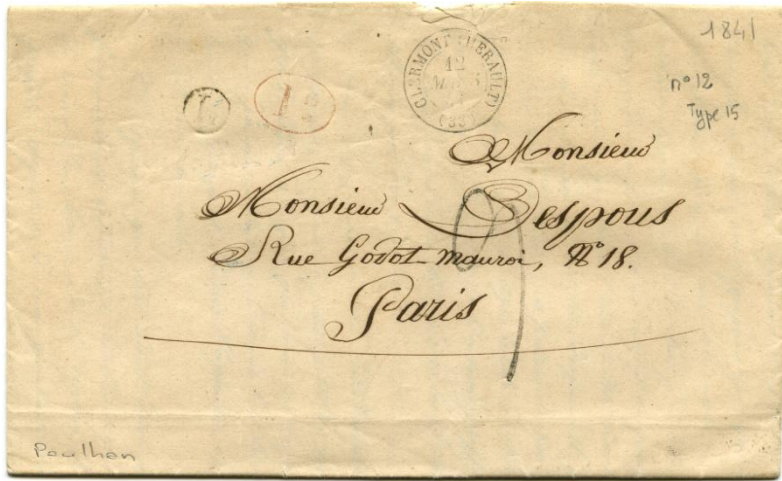 1841
n° 12
Type 15
CLERMONT (HERAULT)
12
(33)
1
Monsieur
Monsieur Despous
Rue Godot mauroi, N° 18.
Paris
9
Paulhan